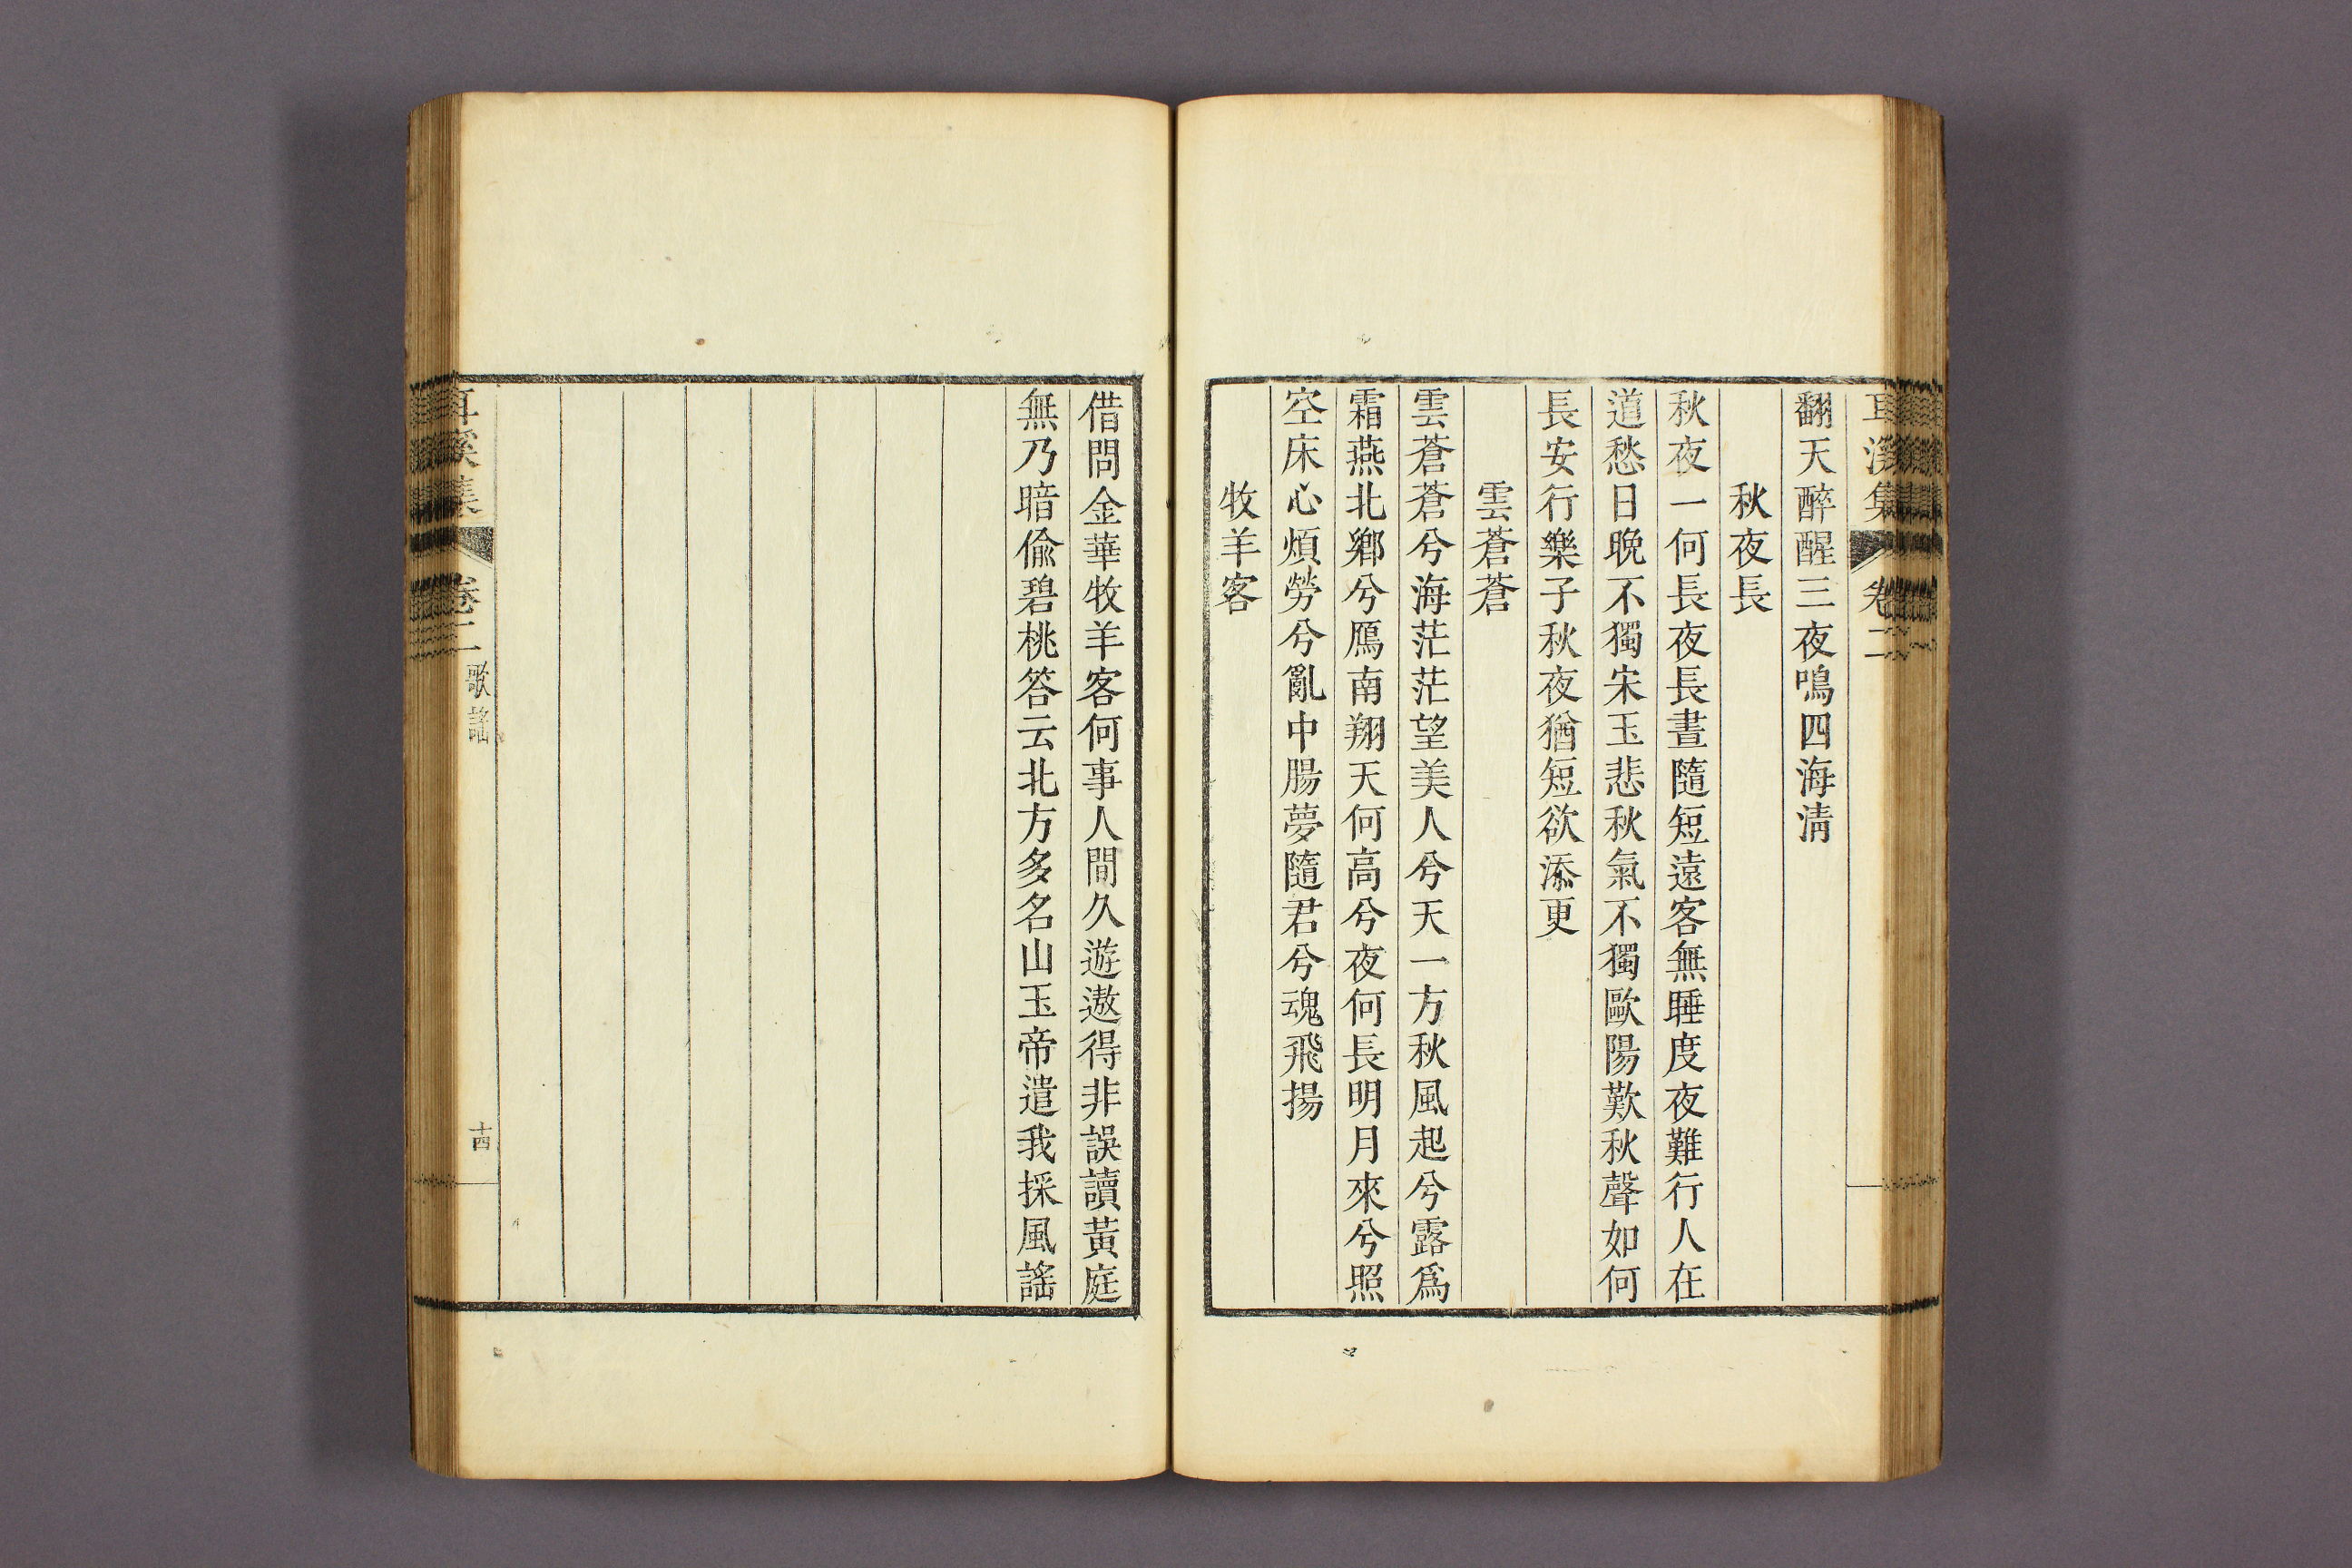 耳溪集 卷二
翻天醉醒三夜鳴四海清
秋夜長
秋夜一何長夜長晝隨短遠客無睡度夜難行人在
道愁日晚不獨宋玉悲秋氣不獨歐陽歎秋聲如何
長安行樂子秋夜猶短欲添更
雲蒼蒼
雲蒼蒼兮海茫茫望美人兮天一方秋風起兮露爲
霜燕北鄉兮鴈南翔天何高兮夜何長明月來兮照
空床心煩勞兮亂中腸夢隨君兮魂飛揚
牧羊客
借問金華牧羊客何事人間久遊遨得非誤讀黃庭
無乃暗偸碧桃答云北方多名山玉帝遣我採風謠
耳溪集 卷二 歌謠 十四